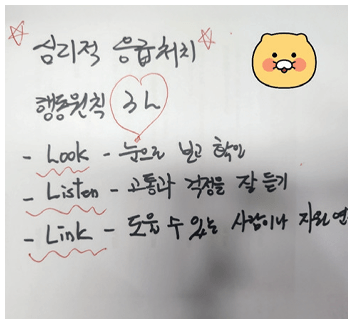 심리적 응급처치
행동원칙 3L
- Look - 눈으로 보고 확인
- Listen - 고통과 걱정을 잘 듣기
- Link - 도움 수 있는 사람이나 자원 연